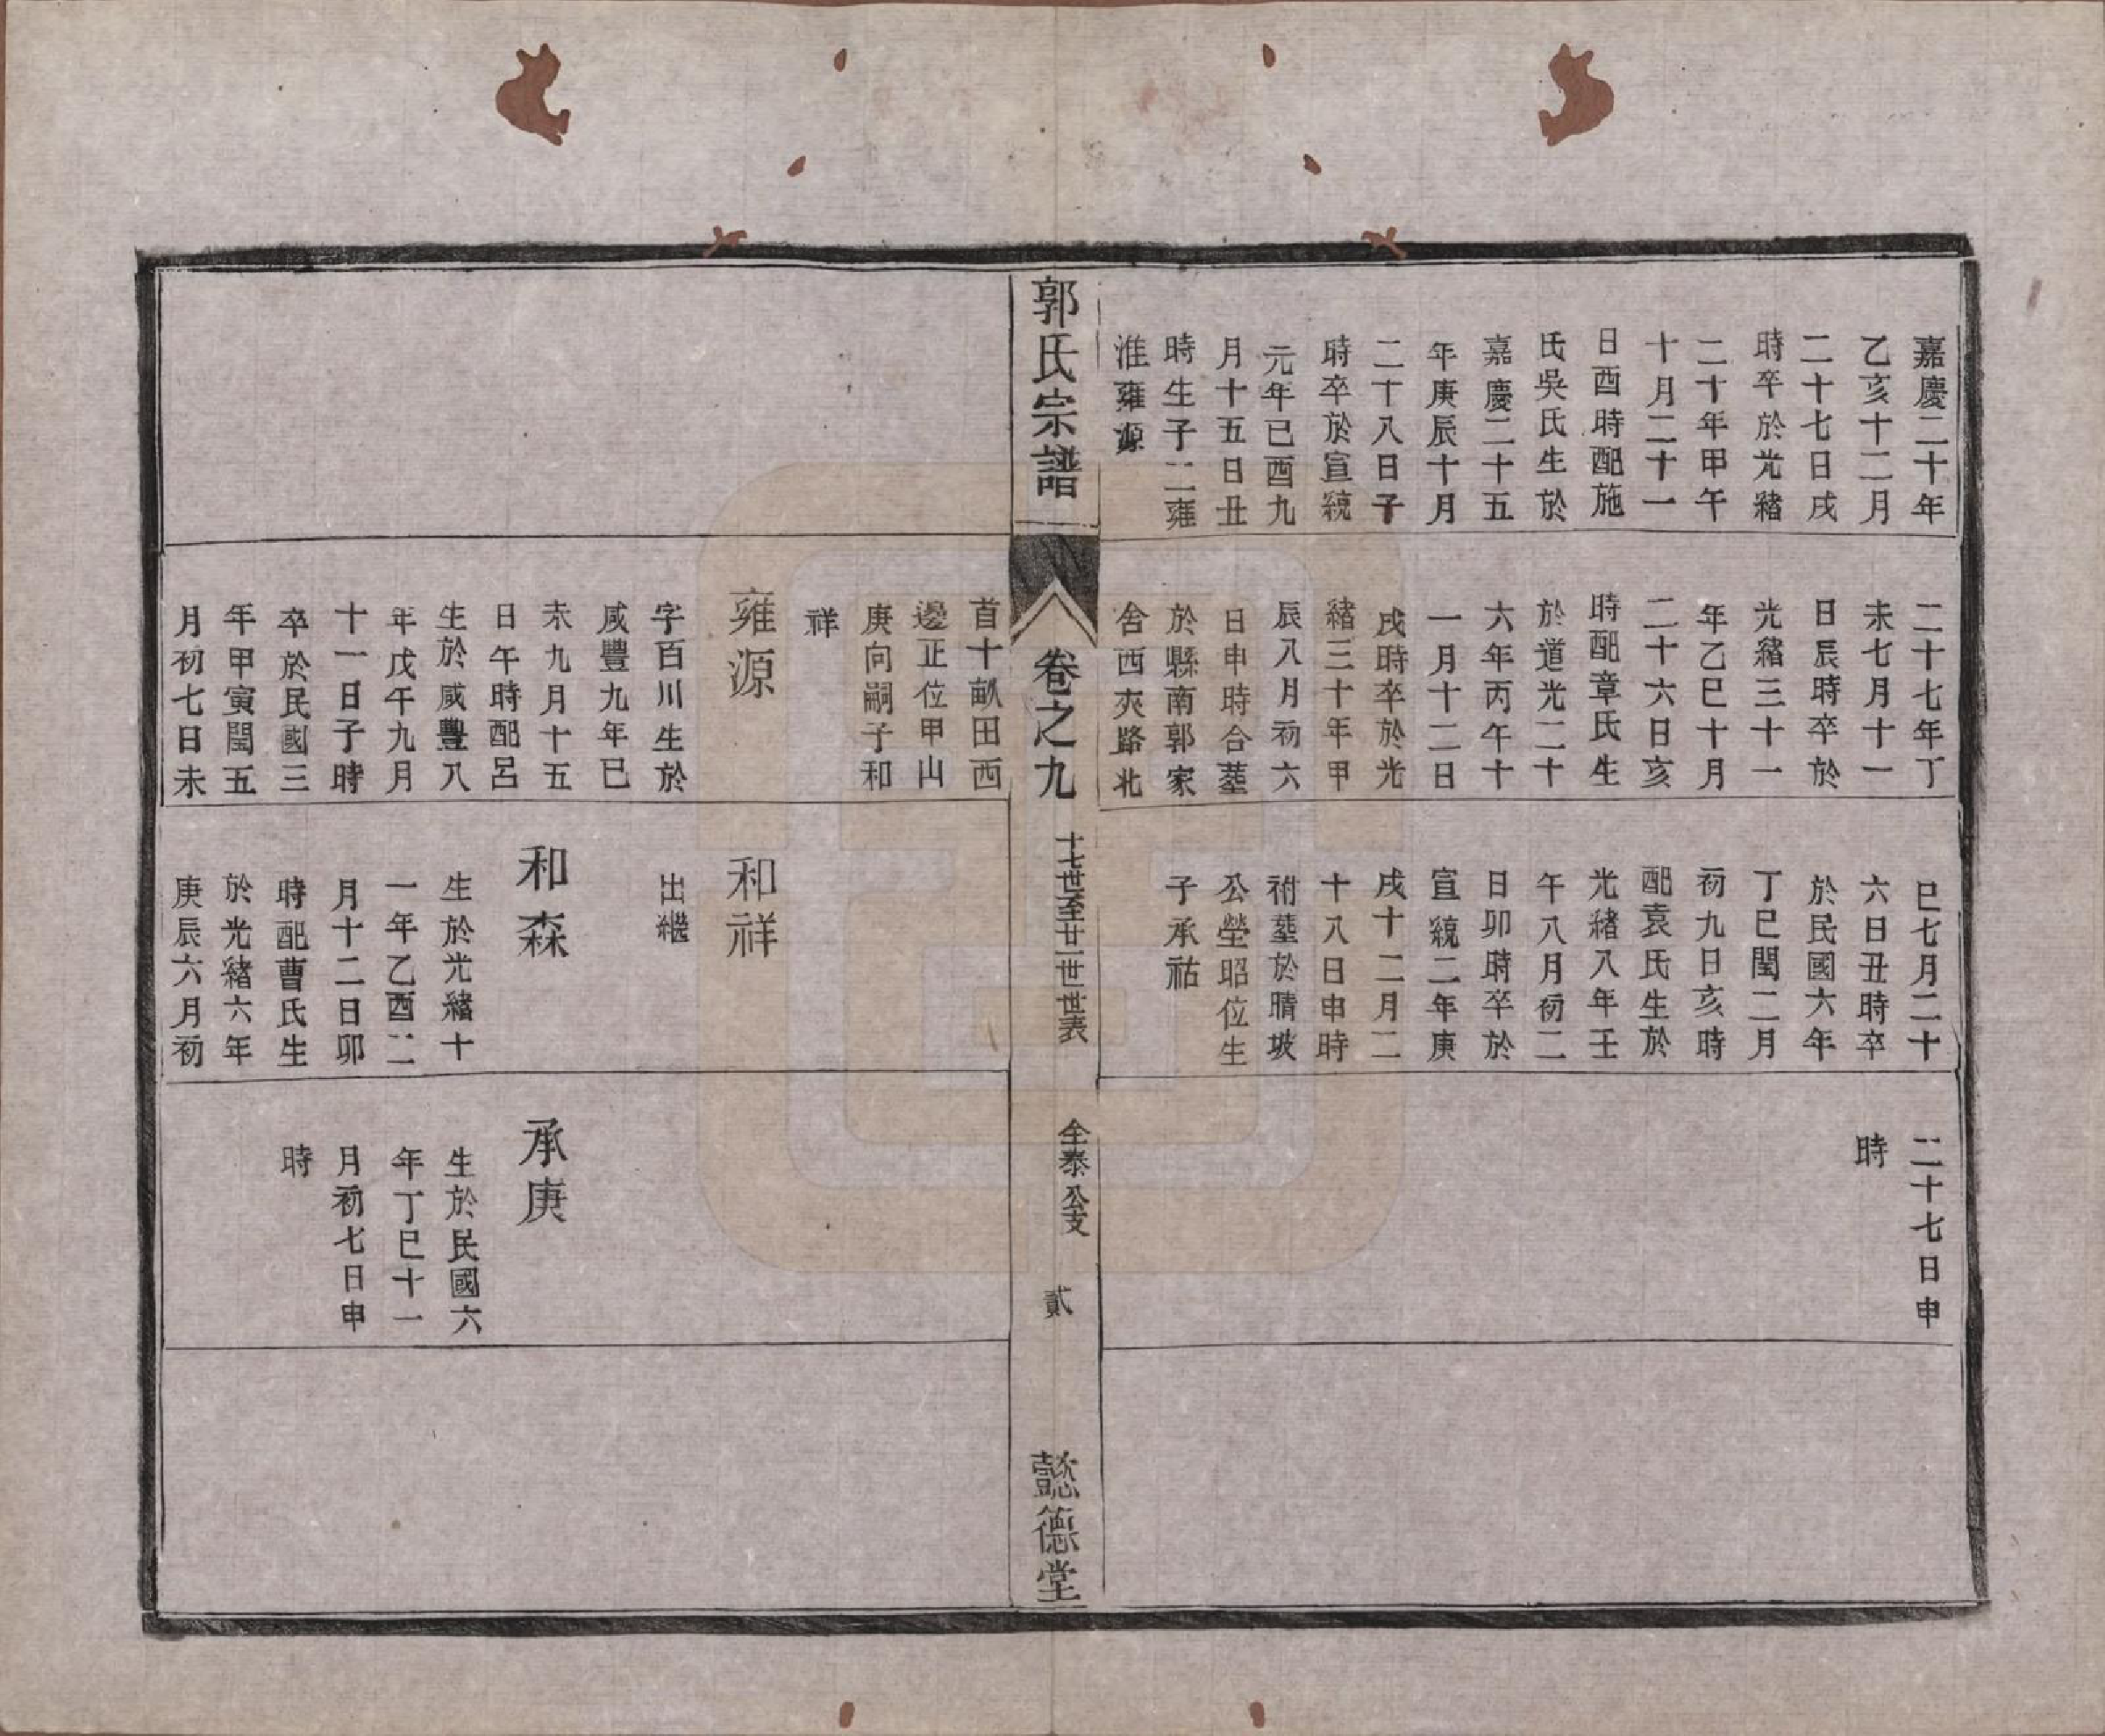 嘉慶二十年
乙亥十二月
二十七日戌
時卒於光緒
二十年甲午
十月二十一
日酉時配施
氏吳氏生於
嘉慶二十五
年庚辰十月
二十八日子
時卒於宣統
元年己酉九
月十五日丑
時生子二雍
淮雍源
二十七年丁
未七月十一
日辰時卒於
光緒三十一
年乙巳十月
二十六日亥
時配章氏生
於道光二十
六年丙午十
一月十二日
戌時卒於光
緒三十年甲
辰八月初六
日申時合塟
於縣南郭家
舍西夾路北
巳七月二十
六日丑時卒
於民國六年
丁巳閏二月
初九日亥時
配袁氏生於
光緒八年壬
午八月初二
日卯時卒於
宣統二年庚
戌十二月二
十八日申時
祔塟於晴坡
公塋昭位生
子承祜
二十七日申
時
郭氏宗譜
卷之九
十七世至廿一世世表
全泰公支
貳
懿德堂
首十畝田西
邊正位甲山
庚向嗣子和
祥
雍源
字百川生於
咸豐九年巳
未九月十五
日午時配呂
生於咸豐八
年戊午九月
十一日子時
卒於民國三
年甲寅閏五
月初七日未
和祥
出繼
和森
生於光緒十
一年乙酉二
月十二日卯
時配曹氏生
於光緒六年
庚辰六月初
承庚
生於民國六
年丁巳十一
月初七日申
時